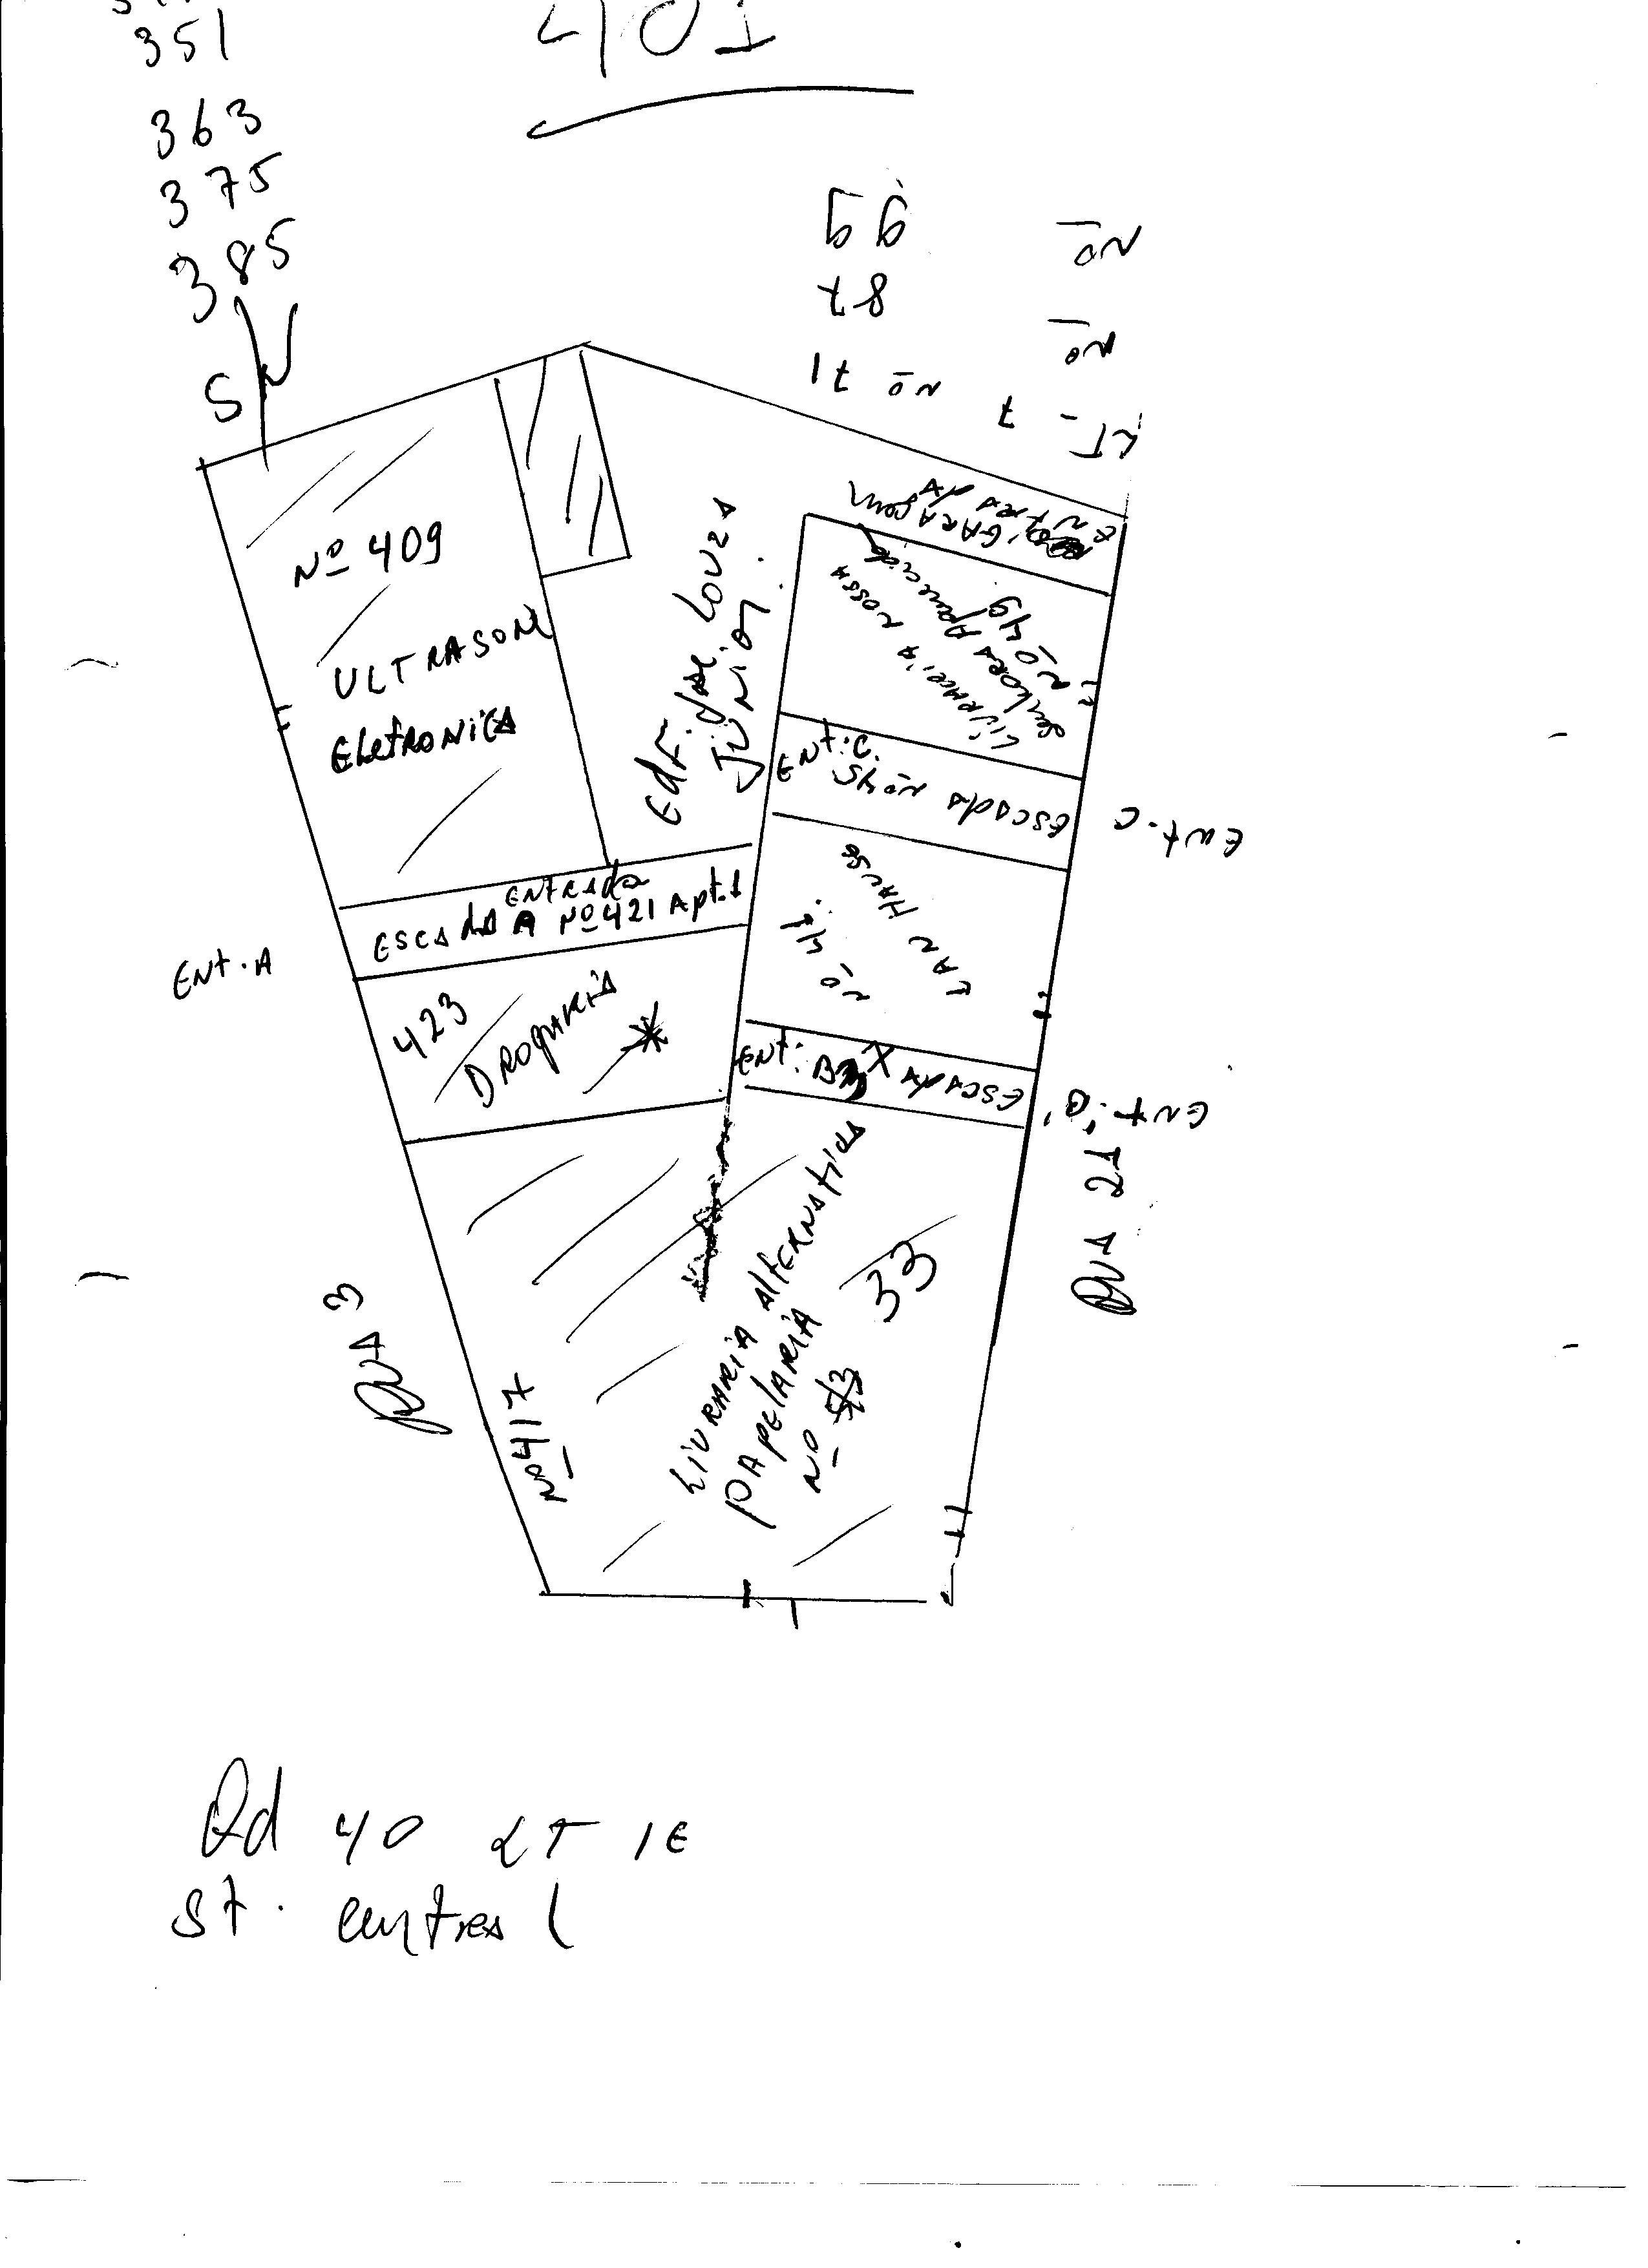 351
363
375
385
401
Nº 99
Nº 87
LT - 7 Nº 71
SN
Nº 409
ULTRASOM
EletRONICA
Edf. José Louza
JUNior.
ENTRADA
GARAgem
LIVRARIA NOSSA
Senhora Aparecida
Nº 49
ENt: C.
EscAda Nº 45
Ent. C
LAN HAUSE
Nº 41
ENtRAda
ESCAdA A Nº 421 Apt.1
ENt. A
423
DROgARIA
ENt: B
EscAdA
ENt. B
RUA 21
RUA 3
Nº 417
LIVRARIA AltERNAtivA
PApelARIA
Nº 33
Qd 40 LT 1E
St. central